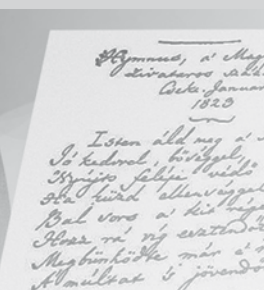 Hymnus, a' Mag
zivataros
Cseke. Januar
1823
Isten áld meg a' M
Jó kedvvel, bőséggel,
Nyújts feléje védő
Ha küzd ellenséggel
Bal sors a' kit rége
Hozz rá víg esztendőt
Megbünhödte már e' n
A' multat 's jövendőt